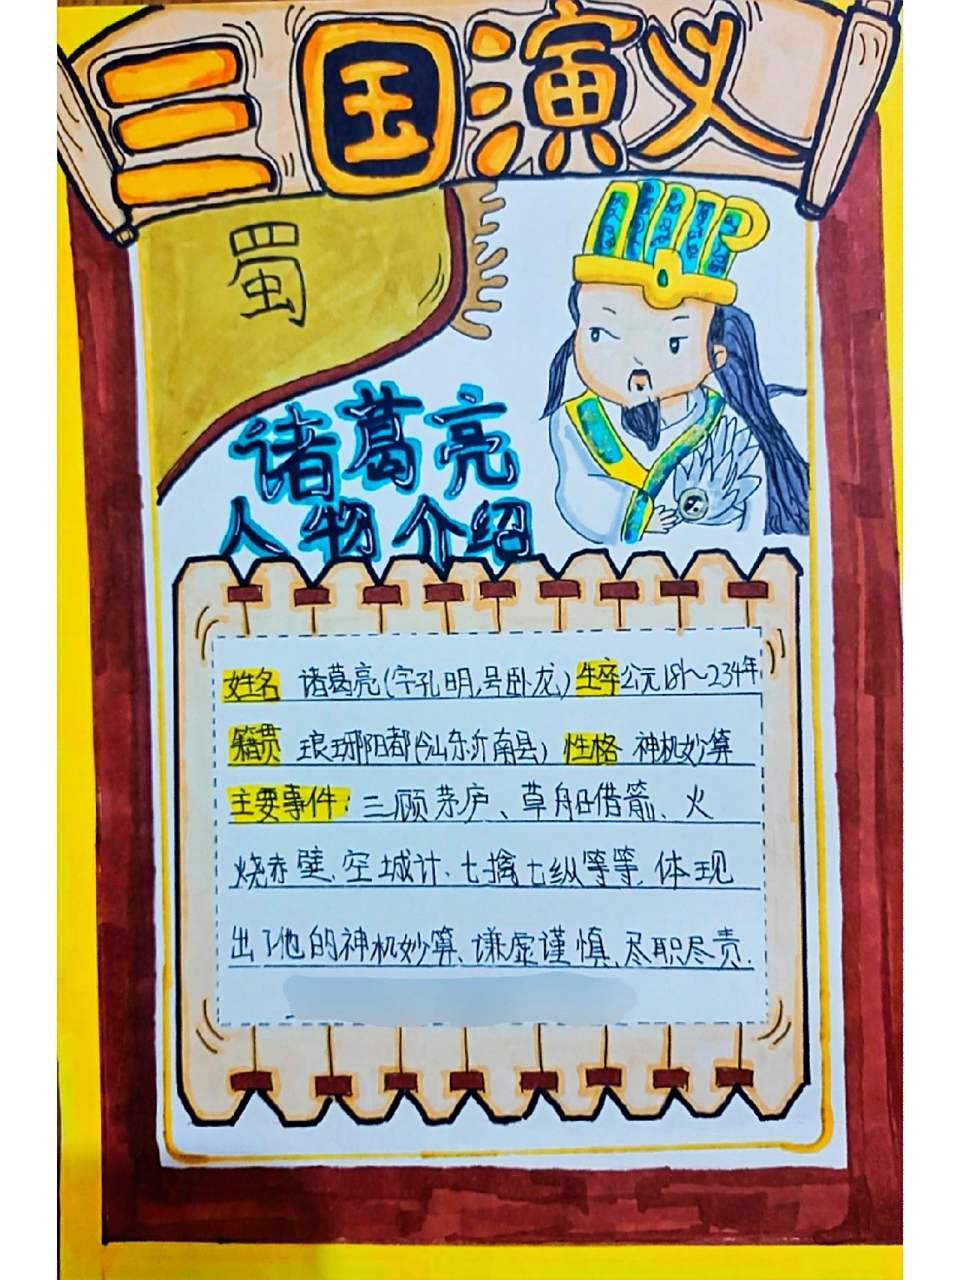 三国演义
蜀
诸葛亮
人物介绍
姓名 诸葛亮(字孔明,号卧龙,) 生卒公元181～234年
籍贯 琅玡阳都(今山东沂南县) 性格 神机妙算
主要事件: 三顾茅庐、草船借箭、火
烧赤壁、空城计、七擒七纵等等,体现
出了他的神机妙算、谦虚谨慎、尽职尽责.